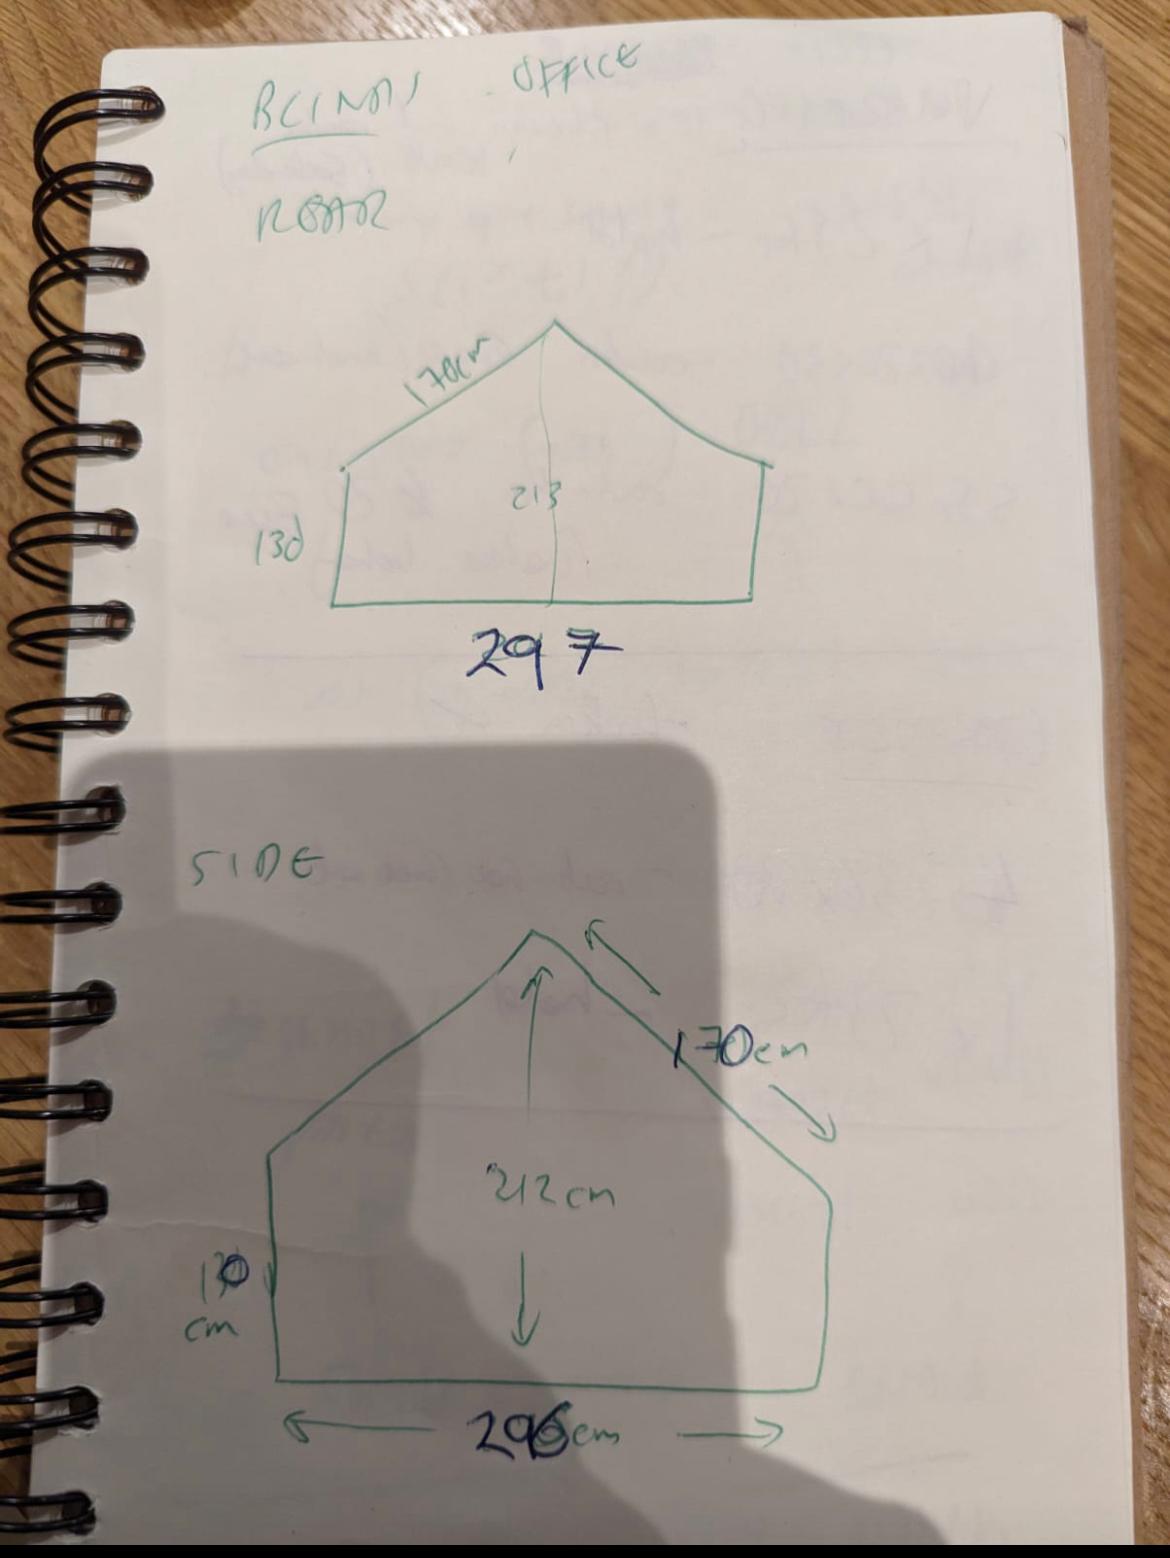 BLINDS OFFICE
REAR
170cm
213
130
297
SIDE
170cm
212cm
130
cm
296cm